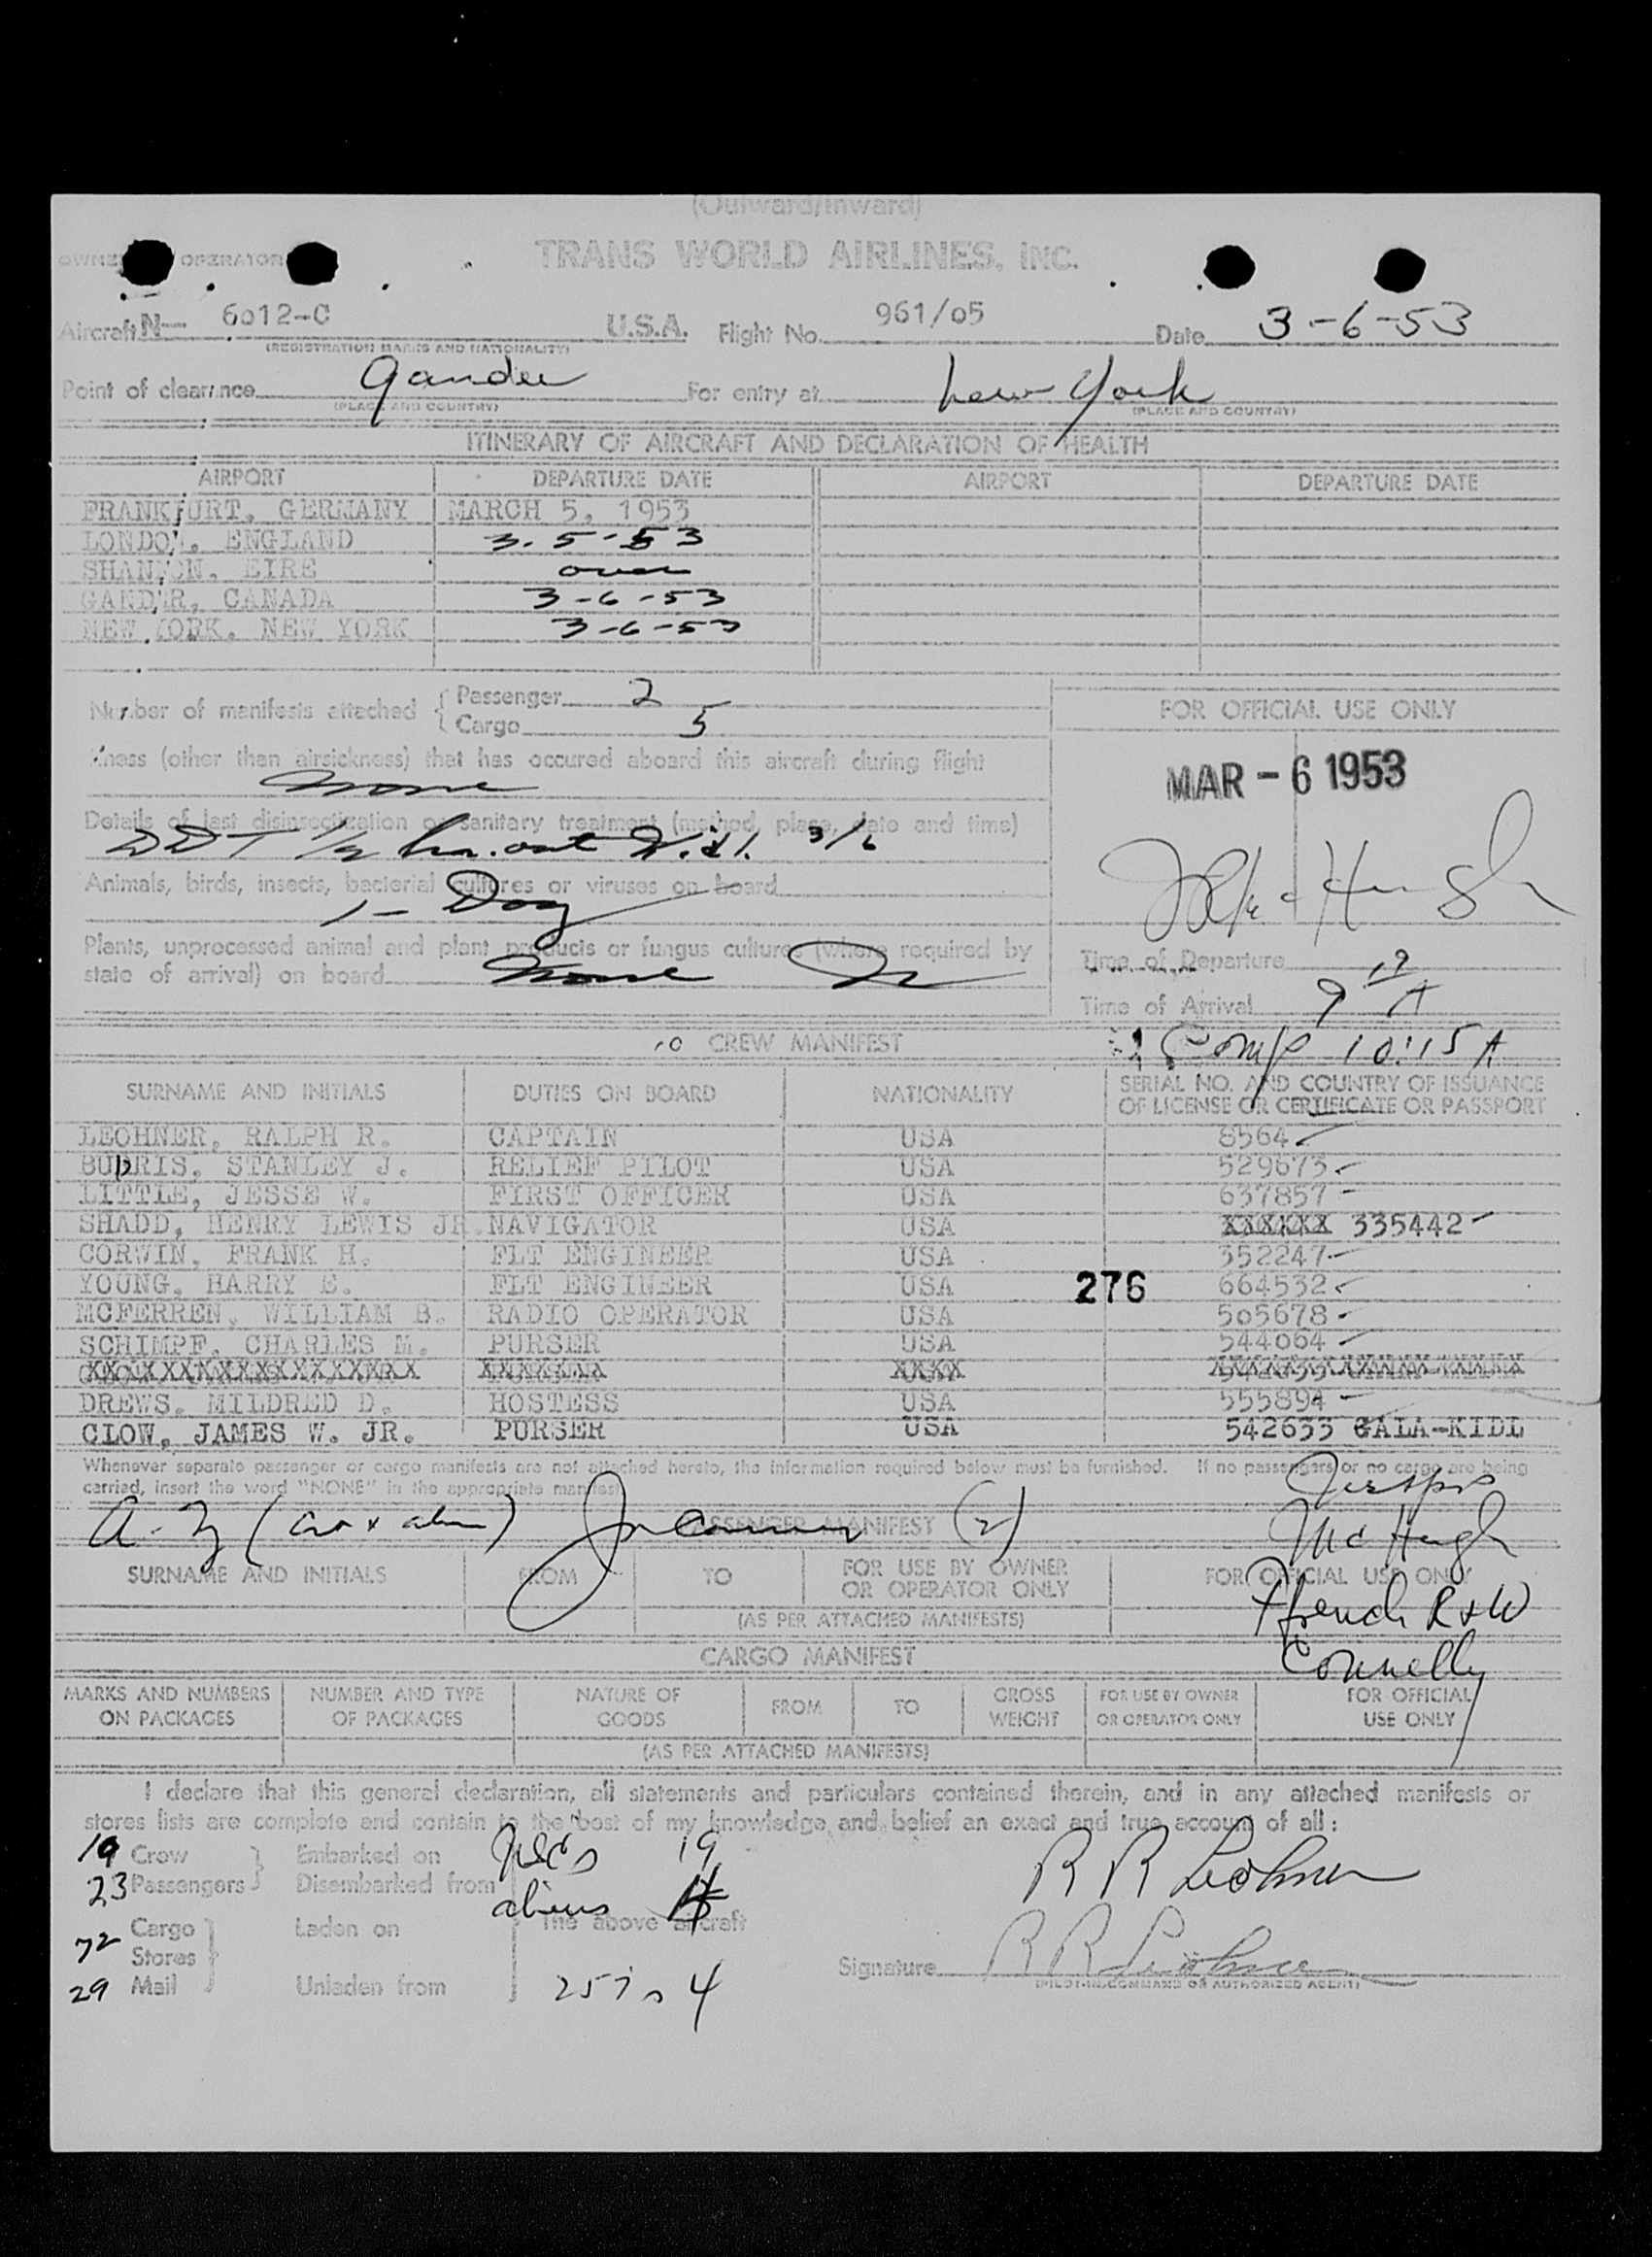 (Outward/Inward)
OPERATOR TRANS WORLD AIRLINES, INC.
Aircraft N- 6012-C U.S.A. Flight No. 961/05 Date 3-6-53
(REGISTRATION MARKS AND NATIONALITY)
Point of clearance Gander For entry at New York
(PLACE AND COUNTRY) (PLACE AND COUNTRY)
ITINERARY OF AIRCRAFT AND DECLARATION OF HEALTH
AIRPORT DEPARTURE DATE AIRPORT DEPARTURE DATE
FRANKFURT, GERMANY MARCH 5, 1953
LONDON, ENGLAND 3-5-53
SHANNON, EIRE over
GANDER, CANADA 3-6-53
NEW YORK, NEW YORK 3-6-53
Number of manifests attached { Passenger 2
Cargo 5
FOR OFFICIAL USE ONLY
lness (other than airsickness) that has occured aboard this aircraft during flight
None
MAR - 6 1953
Details of last disinsectization or sanitary treatment (method, place, date and time)
DDT 1/2 hr. out 3/6
Animals, birds, insects, bacterial cultures or viruses on board
1- Dog
Plants, unprocessed animal and plant products or fungus cultures (where required by
state of arrival) on board None
Time of Departure
Time of Arrival 9 19 A
Comp 10:15 A
10 CREW MANIFEST
SURNAME AND INITIALS DUTIES ON BOARD NATIONALITY SERIAL NO. AND COUNTRY OF ISSUANCE
OF LICENSE OR CERTIFICATE OR PASSPORT
LEOHNER, RALPH R. CAPTAIN USA 8564
BUDRIS, STANLEY J. RELIEF PILOT USA 529673
LITTLE, JESSE W. FIRST OFFICER USA 637857
SHADD, HENRY LEWIS JR. NAVIGATOR USA XXXXXX 335442
CORWIN, FRANK H. FLT ENGINEER USA 352247
YOUNG, HARRY E. FLT ENGINEER USA 276 664532
MCFERREN, WILLIAM B. RADIO OPERATOR USA 505678
SCHIMPF, CHARLES M. PURSER USA 544064
DREWS, MILDRED D. HOSTESS USA 555894
CLOW, JAMES W. JR. PURSER USA 542633 GALA-KIDL
Whenever separate passenger or cargo manifests are not attached hereto, the information required below must be furnished. If no passengers or no cargo are being
carried, insert the word "NONE" in the appropriate manifest
PASSENGER MANIFEST (2)
McHugh
SURNAME AND INITIALS FROM TO FOR USE BY OWNER
OR OPERATOR ONLY FOR OFFICIAL USE ONLY
(AS PER ATTACHED MANIFESTS)
Ffrench R & W
Connelly
CARGO MANIFEST
MARKS AND NUMBERS
ON PACKAGES NUMBER AND TYPE
OF PACKAGES NATURE OF
GOODS FROM TO GROSS
WEIGHT FOR USE BY OWNER
OR OPERATOR ONLY FOR OFFICIAL
USE ONLY
(AS PER ATTACHED MANIFESTS)
I declare that this general declaration, all statements and particulars contained therein, and in any attached manifests or
stores lists are complete and contain to the best of my knowledge and belief an exact and true account of all:
10 Crew Embarked on 19
23 Passengers Disembarked from aliens
R R Leohner
72 Cargo Laden on The above aircraft
Stores
Signature R R Leohner
(PILOT-IN-COMMAND OR AUTHORIZED AGENT)
29 Mail Unladen from 4